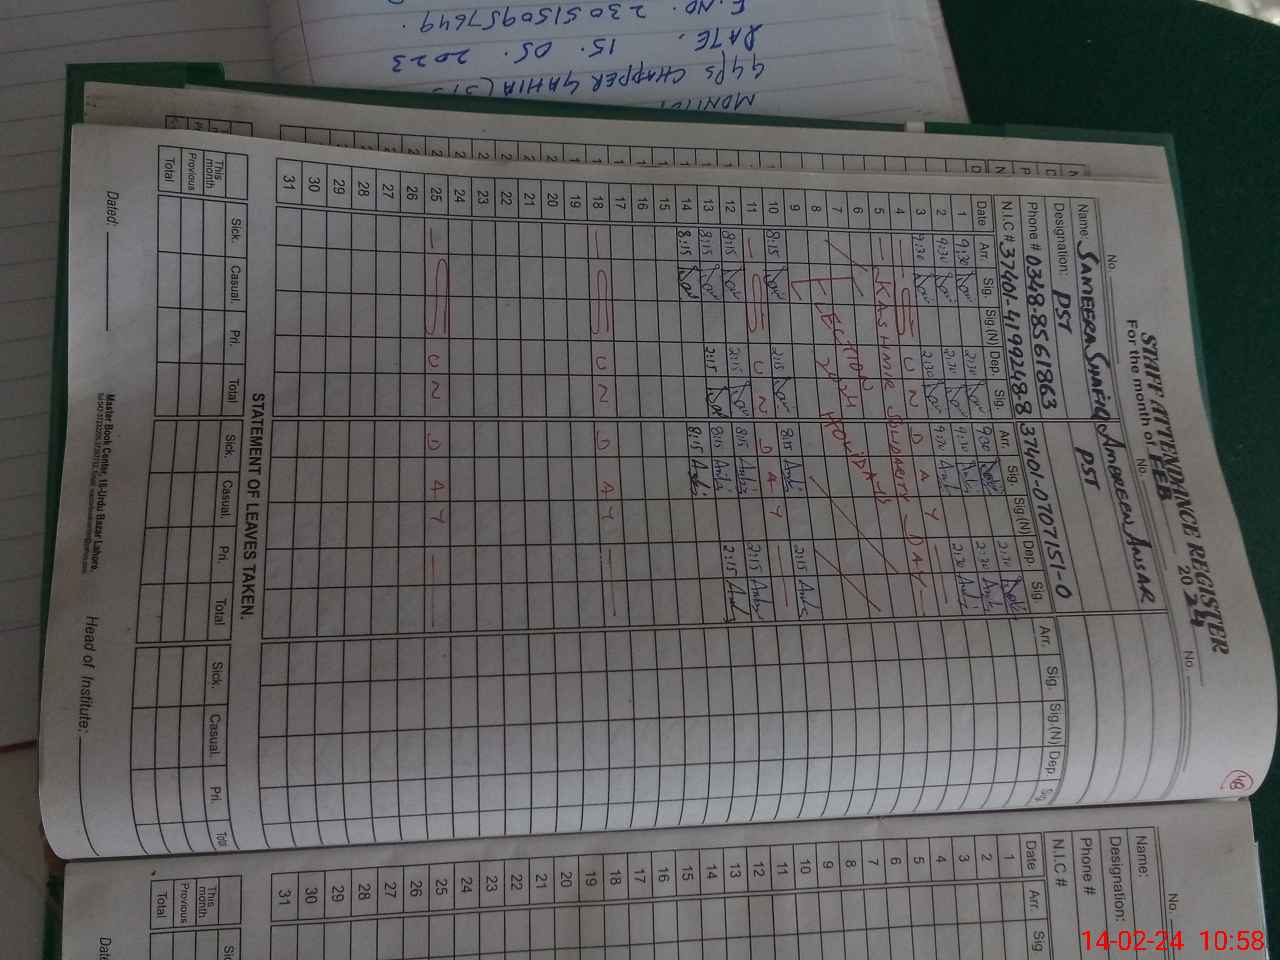 STAFF ATTENDANCE REGISTER
For the month of FEB 2024
No. No. No.
Name: SANEEERA SHAFIQ AMBREEN ANSAR
Designation: PST PST
Phone # 0348-8561863
N.I.C # 37401-4199248-8 37401-0707151-0
Date Arr. Sig. Sig.(N) Dep. Sig. Arr. Sig. Sig.(N) Dep. Sig. Arr. Sig. Sig.(N) Dep. Sig.
1 9:30 2:30 9:30 2:30
2 9:30 2:30 9:30 2:30
3 9:30 2:30 9:30 2:30
4 S U N D A Y
5 KASHMIR SOLIDARITY DAY
6
7 ELECTION 2024 HOLIDAYS
8
9
10 8:15 2:15 8:15 2:15
11 S U N D A Y
12 8:15 2:15 8:15 2:15
13 8:15 2:15 8:15 2:15
14 8:15 8:15
15
16
17
18 S U N D A Y
19
20
21
22
23
24
25 S U N D A Y
26
27
28
29
30
31
STATEMENT OF LEAVES TAKEN.
Sick. Casual. Pri. Total Sick. Casual. Pri. Total Sick. Casual. Pri. Total
This month
Previous
Total
Dated: Head of Institute:
Master Book Center, 18-Urdu Bazar Lahore.
48
CHAPPER
DATE. 15. 05. 2023
E.NO. 2305150957649.
No.
Name:
Designation:
Phone #
N.I.C #
Date Arr. Sig
1
2
3
4
5
6
7
8
9
10
11
12
13
14
15
16
17
18
19
20
21
22
23
24
25
26
27
28
29
30
31
This month
Previous
Total
14-02-24 10:58